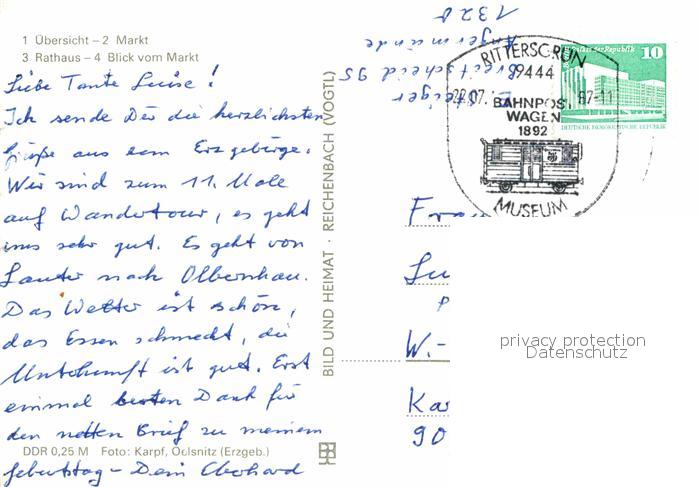 1 Übersicht – 2 Markt
3 Rathaus – 4 Blick vom Markt
Liebe Tante Luise!
Ich sende Dir die herzlichsten
Grüße aus dem Erzgebirge.
Wir sind zum 11. Male
auf Wandertour, es geht
uns sehr gut. Es geht von
Lauter nach Olbernhau.
Das Wetter ist schön,
das Essen schmeckt, die
Unterkunft ist gut. Erst
einmal besten Dank für
den netten Brief zu meinem
DDR 0,25 M Foto: Karpf, Oelsnitz (Erzgeb.)
Geburtstag – Dein Eberhard
BILD UND HEIMAT · REICHENBACH (VOGTL)
E. Steiger
Breitscheid 95
Angermünde
1320
RITTERSGRÜN
9444
22.07. 87-11
BAHNPOST
WAGEN
1892
MUSEUM
Palast der Republik 10
DEUTSCHE DEMOKRATISCHE REPUBLIK
Fra
Lu
P
W.-
Ka
90
privacy protection
Datenschutz